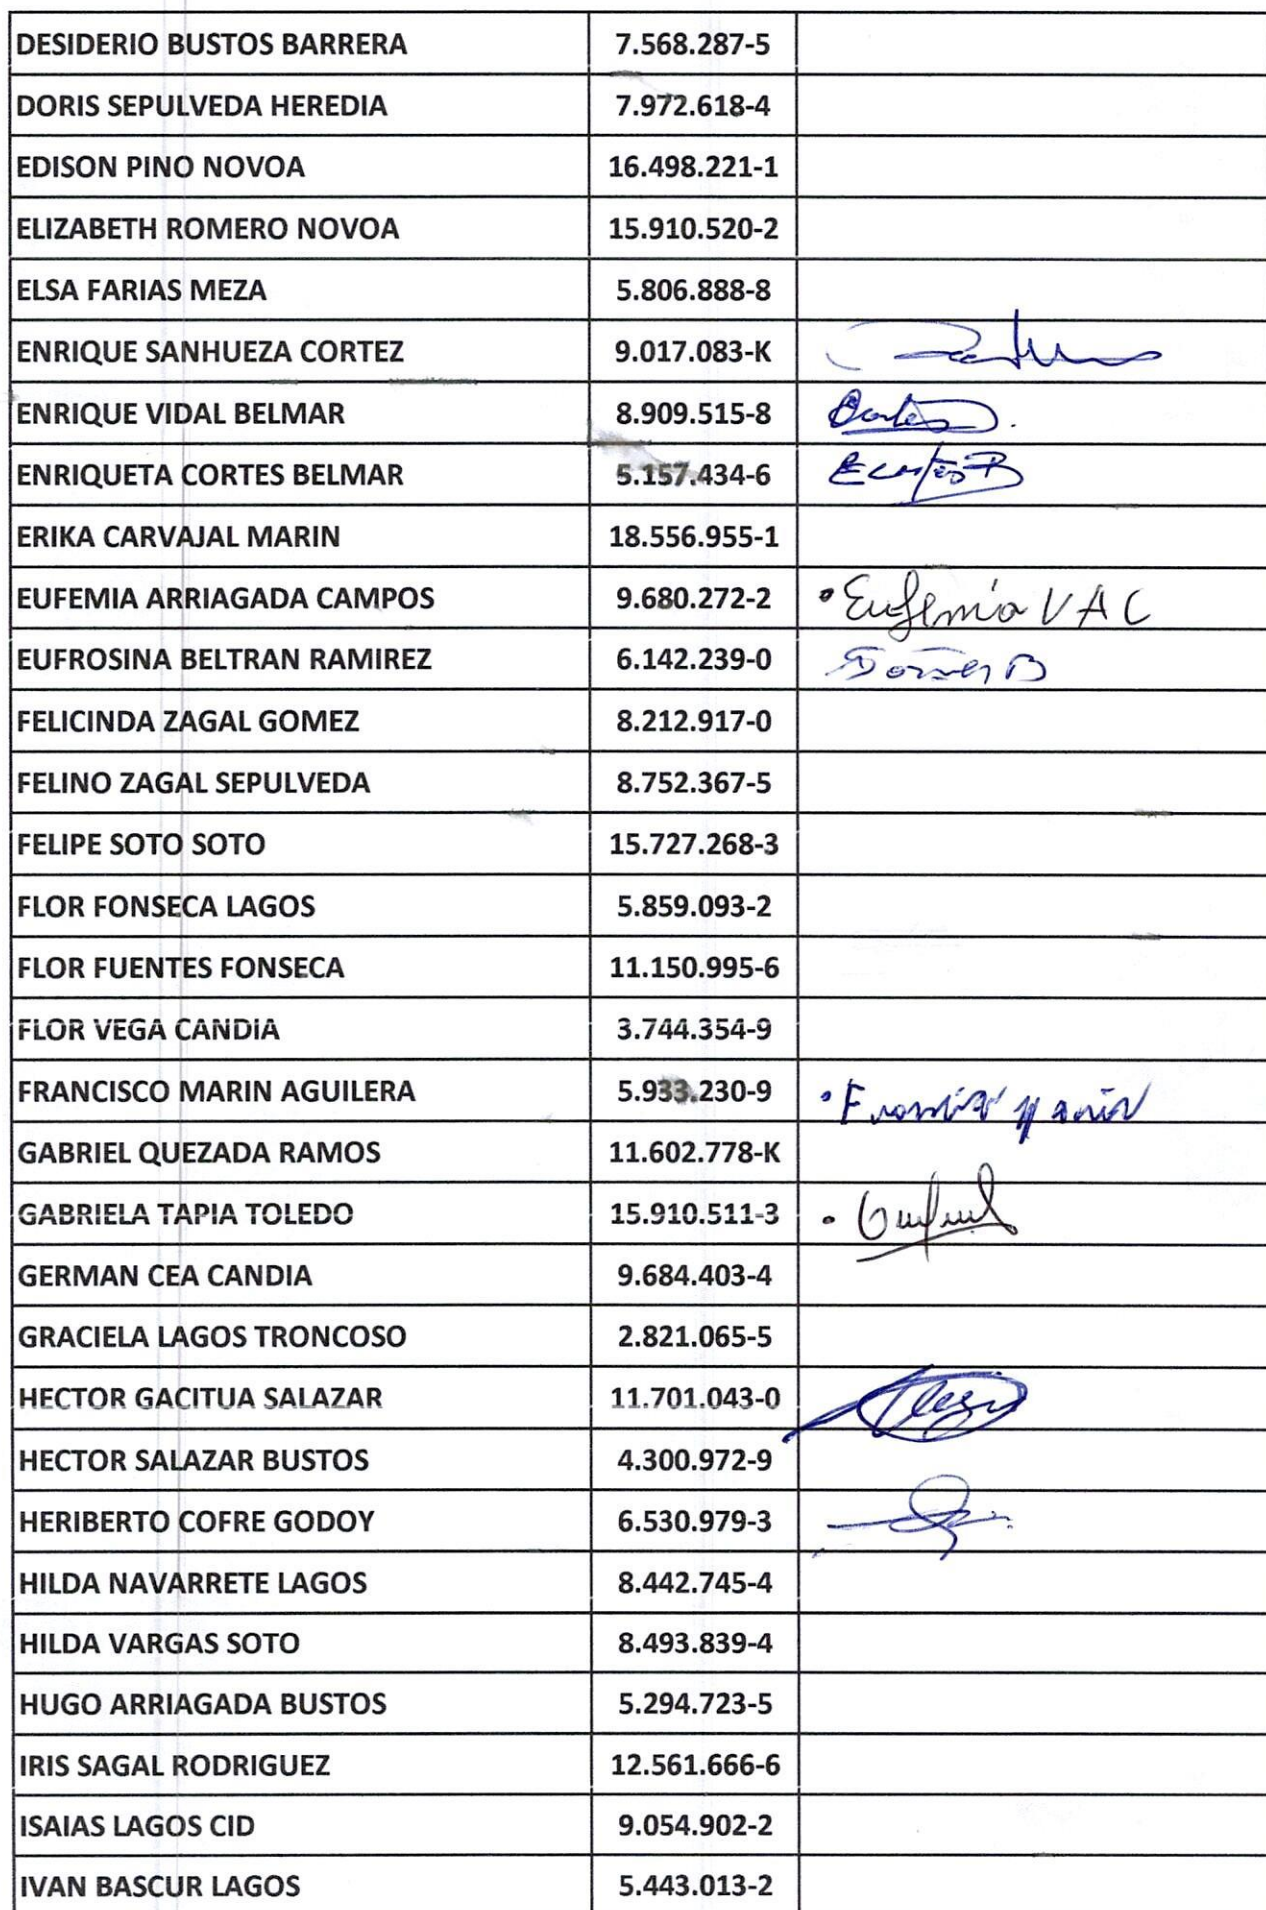 DESIDERIO BUSTOS BARRERA 7.568.287-5
DORIS SEPULVEDA HEREDIA 7.972.618-4
EDISON PINO NOVOA 16.498.221-1
ELIZABETH ROMERO NOVOA 15.910.520-2
ELSA FARIAS MEZA 5.806.888-8
ENRIQUE SANHUEZA CORTEZ 9.017.083-K
ENRIQUE VIDAL BELMAR 8.909.515-8
ENRIQUETA CORTES BELMAR 5.157.434-6
ERIKA CARVAJAL MARIN 18.556.955-1
EUFEMIA ARRIAGADA CAMPOS 9.680.272-2 Eufemia V A C
EUFROSINA BELTRAN RAMIREZ 6.142.239-0
FELICINDA ZAGAL GOMEZ 8.212.917-0
FELINO ZAGAL SEPULVEDA 8.752.367-5
FELIPE SOTO SOTO 15.727.268-3
FLOR FONSECA LAGOS 5.859.093-2
FLOR FUENTES FONSECA 11.150.995-6
FLOR VEGA CANDIA 3.744.354-9
FRANCISCO MARIN AGUILERA 5.933.230-9
GABRIEL QUEZADA RAMOS 11.602.778-K
GABRIELA TAPIA TOLEDO 15.910.511-3
GERMAN CEA CANDIA 9.684.403-4
GRACIELA LAGOS TRONCOSO 2.821.065-5
HECTOR GACITUA SALAZAR 11.701.043-0
HECTOR SALAZAR BUSTOS 4.300.972-9
HERIBERTO COFRE GODOY 6.530.979-3
HILDA NAVARRETE LAGOS 8.442.745-4
HILDA VARGAS SOTO 8.493.839-4
HUGO ARRIAGADA BUSTOS 5.294.723-5
IRIS SAGAL RODRIGUEZ 12.561.666-6
ISAIAS LAGOS CID 9.054.902-2
IVAN BASCUR LAGOS 5.443.013-2